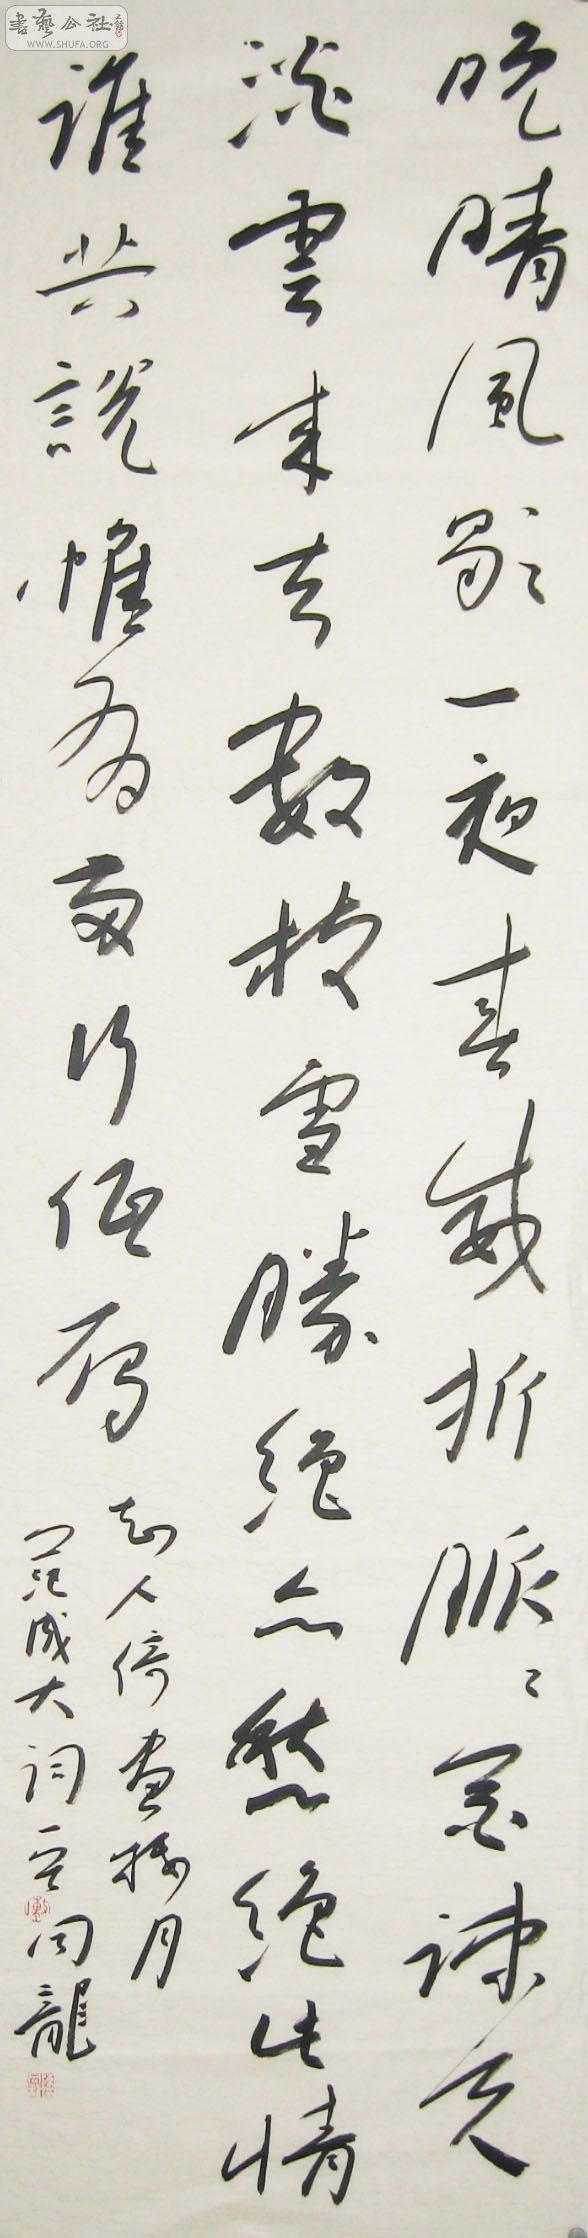 書藝公社
WWW.SHUFA.ORG
晚晴風歇一夜春威折脈〻花疎天
淡雲来去數枝雪勝絕亦愁絕此情
誰共說惟有兩行低雁
知人倚畫樓月
范成大詞 龍